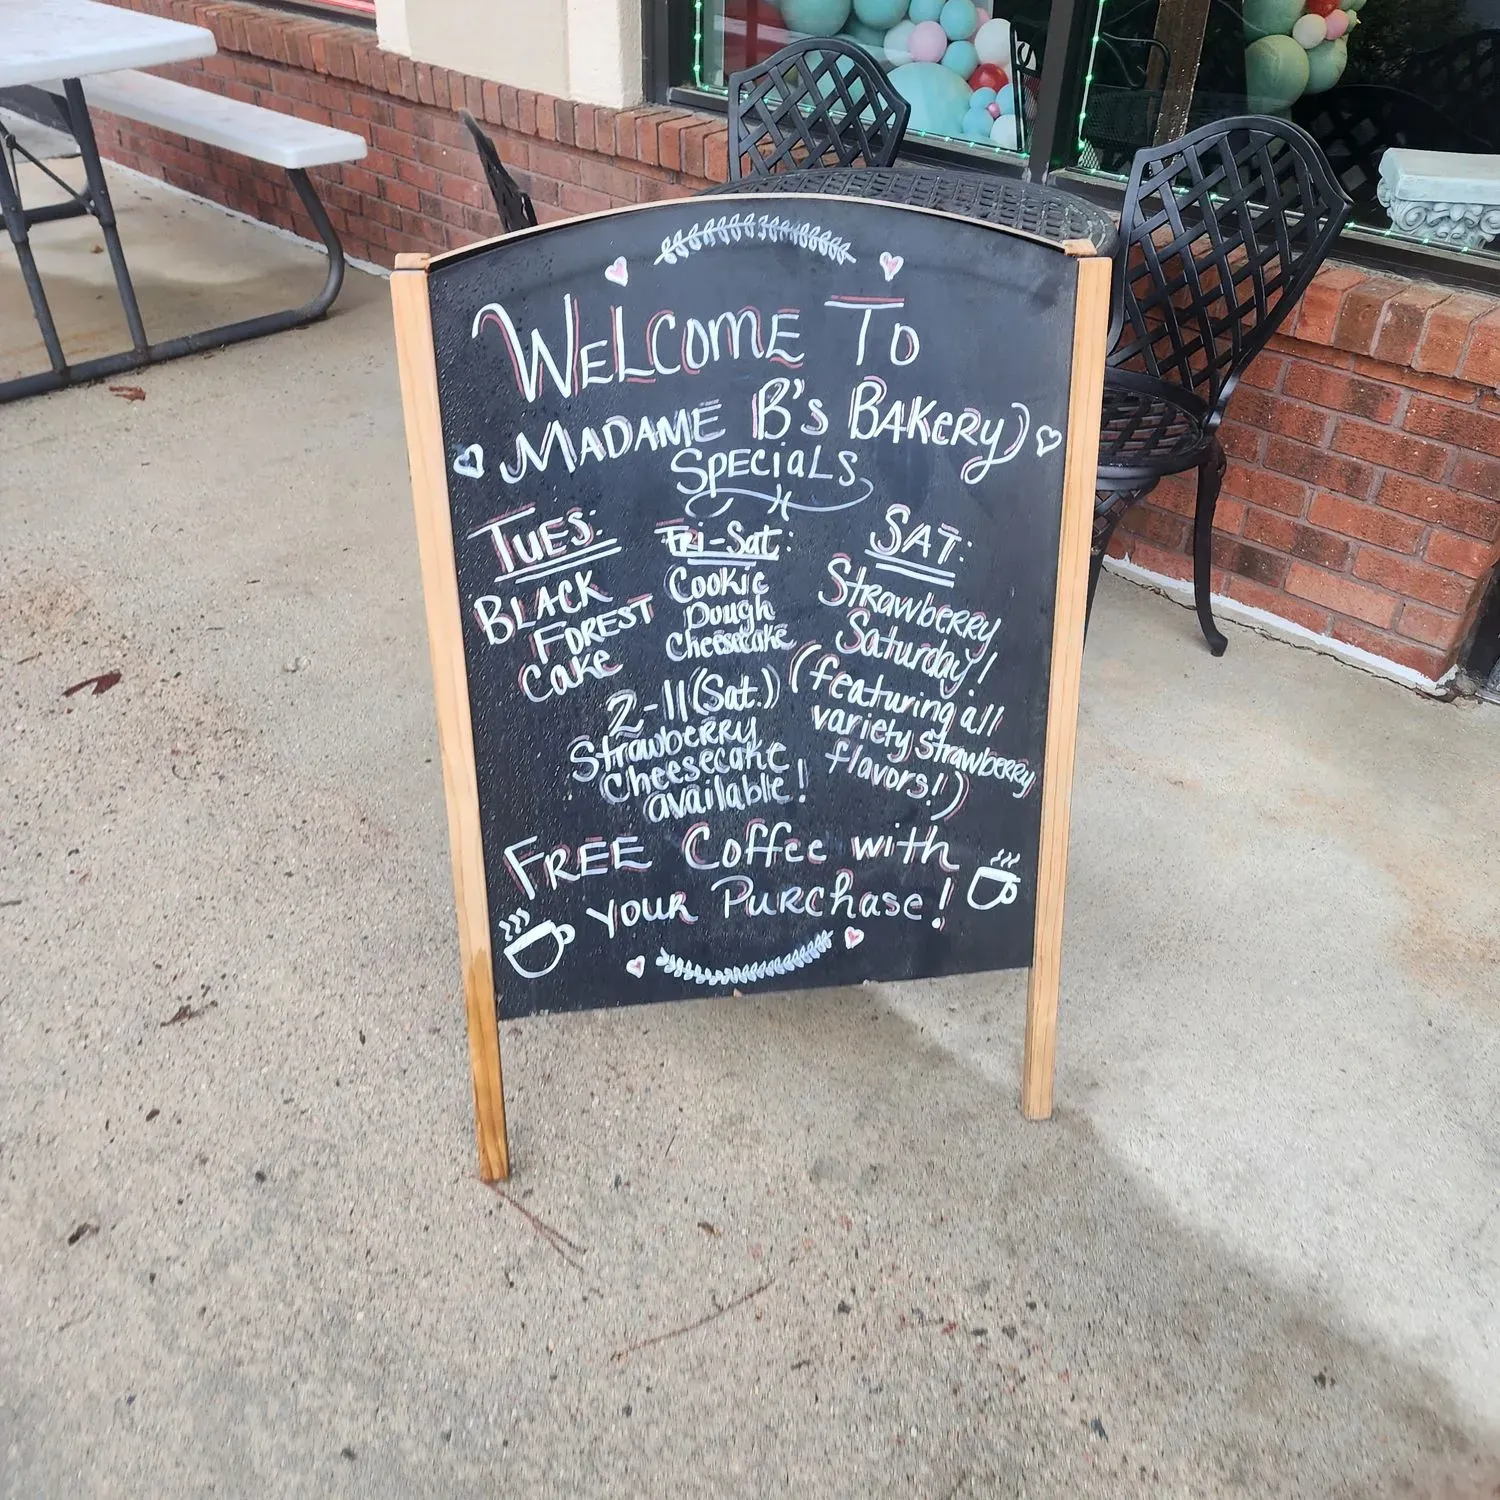 WELCOME TO
MADAME B's BAKERY
SPECiALS
TUES:
BLACK
FOREST
CaKe
Fri-Sat:
Cookie
Dough
Cheesecake
2-11(Sat.)
Strawberry
Cheesecake
available!
SAT:
Strawberry
Saturday!
(featuring all
variety strawberry
flavors!)
FREE Coffee with
your Purchase!